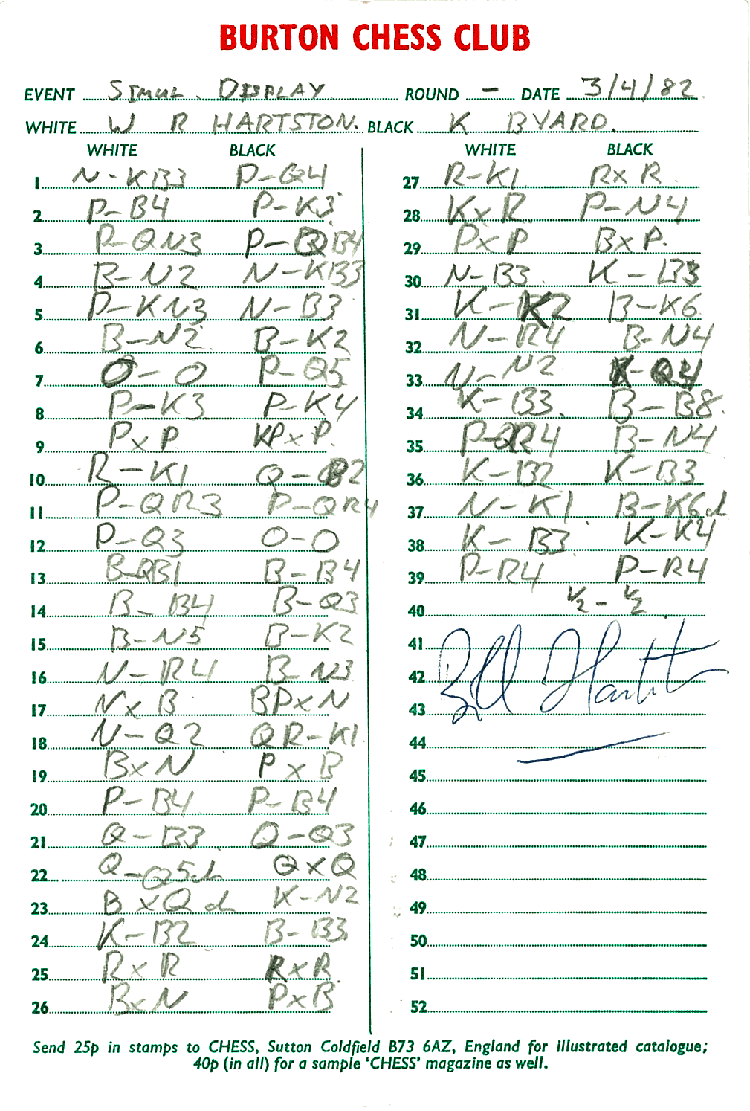 BURTON CHESS CLUB
EVENT SIMUL. DISPLAY ROUND - DATE 3/4/82
WHITE W R HARTSTON. BLACK K BYARD.
WHITE BLACK
1 N-KB3 P-Q4
2 P-B4 P-K3
3 P-QN3 P-QB4
4 B-N2 N-KB3
5 P-KN3 N-B3
6 B-N2 B-K2
7 O-O P-Q5
8 P-K3 P-K4
9 PxP KPxP
10 R-K1 Q-B2
11 P-QR3 P-QR4
12 P-Q3 O-O
13 B-QB1 B-B4
14 B-B4 B-Q3
15 B-N5 B-K2
16 N-R4 B-N3
17 NxB BPxN
18 N-Q2 QR-K1
19 BxN PxB
20 P-B4 P-B4
21 Q-B3 Q-Q3
22 Q-Q5ch QxQ
23 BxQ ch K-N2
24 K-B2 B-B3
25 RxR RxR
26 BxN PxB
WHITE BLACK
27 R-K1 RxR
28 KxR P-N4
29 PxP BxP.
30 N-B3 K-B3
31 K-K2 B-K6
32 N-R4 B-N4
33 N-N2 K-Q4
34 K-B3. B-B8.
35 P-QR4 B-N4
36 K-B2 K-B3
37 N-K1 B-K6ch
38 K-B3 K-K4
39 P-R4 P-R4
40 ½-½
41
42 Bill Hartston
43
44
45
46
47
48
49
50
51
52
Send 25p in stamps to CHESS, Sutton Coldfield B73 6AZ, England for illustrated catalogue;
40p (in all) for a sample 'CHESS' magazine as well.